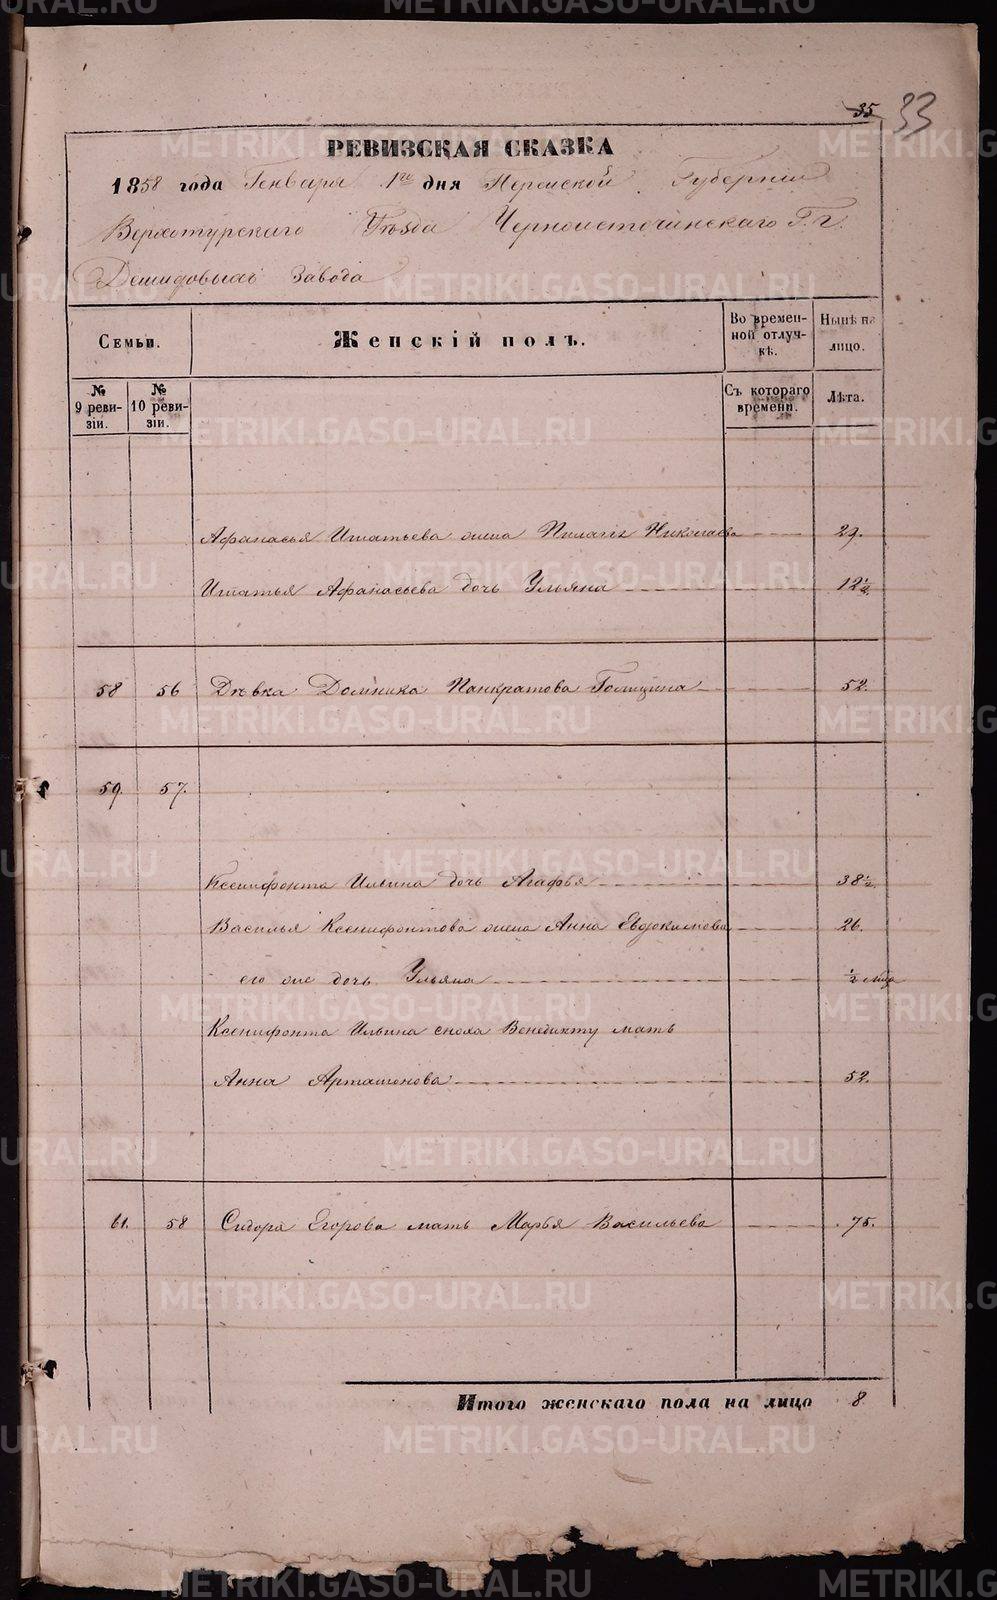 35 33
РЕВИЗСКАЯ СКАЗКА
1858 года Генваря 1го дня Пермской Губерніи
Верхотурскаго Уѣзда Черноисточинскаго Г. г.
Демидовыхъ завода
Семьи.
Женскій полъ.
Во временной отлучкѣ.
Нынѣ на лицо.
№ 9 ревизіи.
№ 10 ревизіи.
Съ котораго времени.
Лѣта.
Афанасья Игнатьева жена Пилагія Николаева 29.
Игнатья Афанасьева дочь Ульяна 12½.
58 56 Дѣвка Домника Панкратова Голицина 52.
59. 57.
Ксенифонта Ильина дочь Агафья 38½.
Василья Ксенифонтова жена Анна Евдокимова 26.
его же дочь Ульяна ½
Ксенифонта Ильина сноха Венедикту мать
Анна Артамонова 52.
61. 58 Сидора Егорова мать Марья Васильева 75.
Итого женскаго пола на лицо 8
METRIKI.GASO-URAL.RU